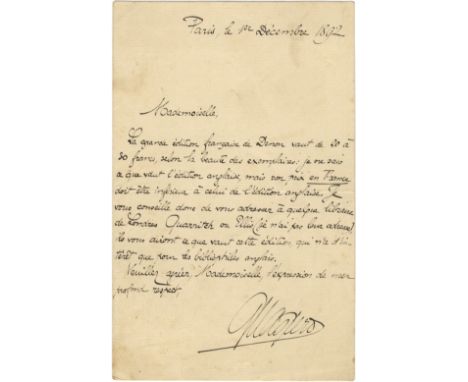 Paris, le 1er Décembre 1892
Mademoiselle,
La grande édition française de Denon vaut de 20 à
30 francs, selon la beauté des exemplaires; je ne sais
ce que vaut l'édition anglaise, mais son prix en France
doit être inférieur à celui de l'édition anglaise. Je
vous conseille donc de vous adresser à quelque libraire
de Londres Quarritch ou Ellis (je n'ai pas leur adresse)
ils vous diront ce que vaut cette édition, qui n'a d'in-
térêt que pour les bibliophiles anglais.
Veuillez agréer, Mademoiselle, l'expression de mon
profond respect.